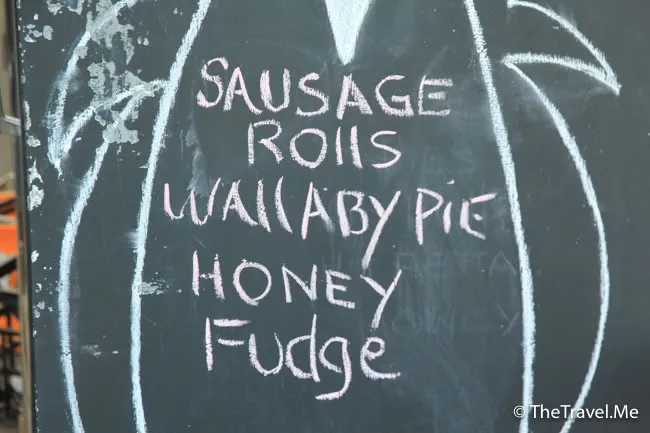 SAUSAGE
ROllS
WAllABY PiE
HONEY
Fudge
© TheTravel.Me